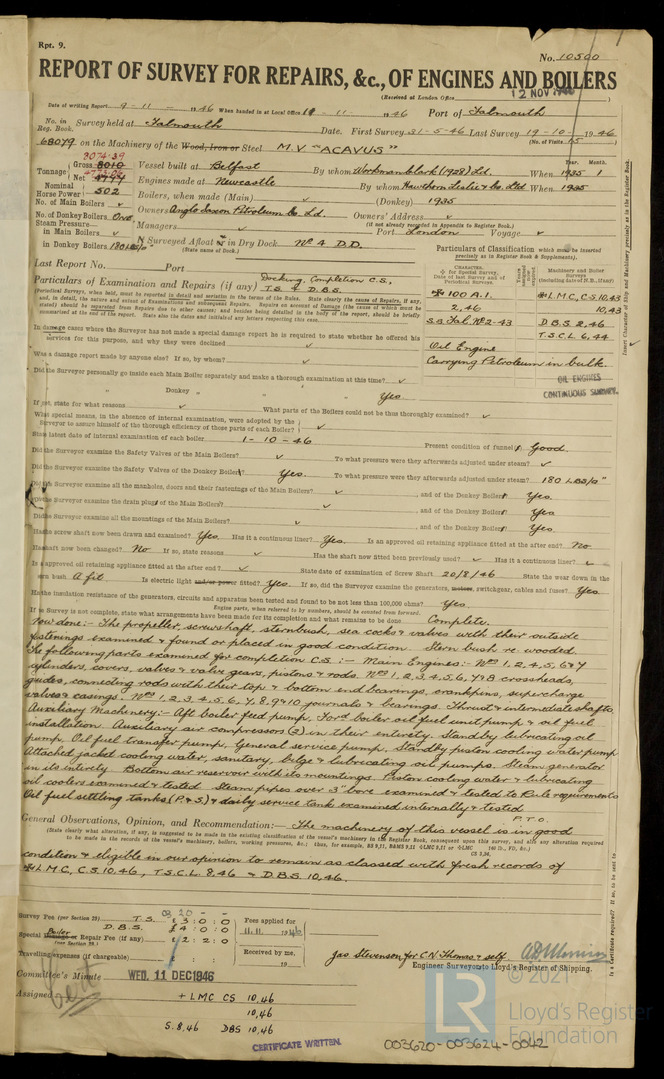 Rpt. 9.
No. 10500
REPORT OF SURVEY FOR REPAIRS, &c., OF ENGINES AND BOILERS
(Received at London Office 12 NOV 1946)
Date of writing Report 9-11- 1946 When handed in at Local Office 11 - 11 - 1946 Port of Falmouth
No. in Reg. Book. Survey held at Falmouth Date. First Survey 31-5-46 Last Survey 19-10- 1946
(No. of Visits 15)
68079 on the Machinery of the Wood, Iron or Steel M.V "ACAVUS"
Tonnage Gross 8010 3074.39 Vessel built at Belfast By whom Workman Clark (1928) Ltd. When Year. 1935 Month. 1
Net Engines made at Newcastle By whom Hawthorn Leslie & Co. Ltd When 1935
Nominal Horse Power 502 Boilers, when made (Main) (Donkey) 1935
No. of Main Boilers
No. of Donkey Boilers One Owners Anglo Saxon Petroleum Co. Ltd. Owners' Address
(if not already recorded in Appendix to Register Book.)
Steam Pressure— in Main Boilers Managers Port London Voyage
in Donkey Boilers 180 lbs/□" Surveyed Afloat or in Dry Dock. No 4 D.D.
(State name of Dock.)
Particulars of Classification which must be inserted precisely as in Register Book & Supplements).
Last Report No. Port
Particulars of Examination and Repairs (if any) Docking, Completion C.S., T.S. & D.B.S.
CHARACTER.
Machinery and Boiler Surveys (including dates of N.B., if any)
100 A.1. LMC, C.S. 10,43
2,46 10,43
S.S. Fal. No 2-43 D.B.S. 2,46
T.S.C.L. 6,44
Oil Engine
Carrying Petroleum in bulk.
OIL ENGINES
CONTINUOUS SURVEY.
In damage cases where the Surveyor has not made a special damage report he is required to state whether he offered his
services for this purpose, and why they were declined
Was a damage report made by anyone else? If so, by whom?
Did the Surveyor personally go inside each Main Boiler separately and make a thorough examination at this time?
" Donkey " " Yes
If not, state for what reasons What parts of the Boilers could not be thoroughly examined?
What special means, in the absence of internal examination, were adopted by the
Surveyor to assure himself of the thorough efficiency of those parts of each Boiler?
State latest date of internal examination of each boiler 1-10-46 Present condition of funnel Good.
Did the Surveyor examine the Safety Valves of the Main Boilers? To what pressure were they afterwards adjusted under steam?
Did the Surveyor examine the Safety Valves of the Donkey Boiler? Yes. To what pressure were they afterwards adjusted under steam? 180 LBS/□"
Did the Surveyor examine all the manholes, doors and their fastenings of the Main Boilers? , and of the Donkey Boiler? Yes
Did the Surveyor examine the drain plugs of the Main Boilers? , and of the Donkey Boiler? Yes
Did the Surveyor examine all the mountings of the Main Boilers? , and of the Donkey Boiler? Yes
Has the screw shaft now been drawn and examined? Yes Has it a continuous liner? Yes. Is an approved oil retaining appliance fitted at the after end? No
Has shaft now been changed? No If so, state reasons Has the shaft now fitted been previously used? Has it a continuous liner?
Is an approved oil retaining appliance fitted at the after end? State date of examination of Screw Shaft 20/8/46 State the wear down in the
stern bush A fit Is electric light and/or power fitted? Yes If so, did the Surveyor examine the generators, motors, switchgear, cables and fuses? Yes
Has the insulation resistance of the generators, circuits and apparatus been tested and found to be not less than 100,000 ohms? Yes
Engine parts, when referred to by numbers, should be counted from forward.
If the Survey is not complete, state what arrangements have been made for its completion and what remains to be done Complete.
Now done:- The propeller, screwshaft, sternbush, sea cocks & valves with their outside
fastenings examined & found or placed in good condition. Stern bush re wooded.
The following parts examined for completion C.S. :- Main Engines:- Nos 1, 2, 4, 5, 6 & 7
cylinders, covers, valves & valve gears, pistons & rods. Nos 1, 2, 3, 4, 5, 6, 7 & 8 crossheads,
guides, connecting rods with their top & bottom end bearings, crankpins, supercharge
valves & casings. Nos 1, 2, 3, 4, 5, 6, 7, 8, 9 & 10 journals & bearings. Thrust & intermediate shafts.
Auxiliary Machinery:- Aft boiler feed pump, For'd boiler oil fuel unit pump & oil fuel
installation. Auxiliary air compressors (2) in their entirety. Standby lubricating oil
pump, Oil fuel transfer pump, General service pump, Standby piston cooling water pump
Attached jacket cooling water, sanitary, bilge & lubricating oil pumps. Steam generator
in its entirety. Bottom air reservoir with its mountings. Piston cooling water & lubricating
oil coolers examined & tested. Steam pipes over 3" bore examined & tested to Rule requirements
Oil fuel settling tanks (P. & S.) & daily service tank examined internally & tested.
P.T.O.
General Observations, Opinion, and Recommendation:— The machinery of this vessel is in good
(State clearly what alteration, if any, is suggested to be made in the existing classification of the vessel's machinery in the Register Book, consequent upon this survey, and also any alteration required
to be made in the records of the vessel's machinery, boilers, working pressures, &c.;
condition & eligible in our opinion to remain as classed with fresh records of
LMC, C.S. 10.46, T.S.C.L. 8.46 & D.B.S. 10.46.
Survey Fee (per Section 29) T.S. £3:0:0 Fees applied for
D.B.S. £4:0:0 11.11. 1946
Special Damage or Repair Fee (if any) £2:2:0
(see Section 29.)
Travelling expenses (if chargeable) £ : : Received by me, 19
Jas Stevenson for C.N. Thomas & self
Engineer Surveyor to Lloyd's Register of Shipping.
Committee's Minute WED. 11 DEC 1946
Assigned + LMC CS 10,46
10,46
5.8,46 DBS 10,46
CERTIFICATE WRITTEN.
LR
© 2021
Lloyd's Register
Foundation
003620-003624-0042